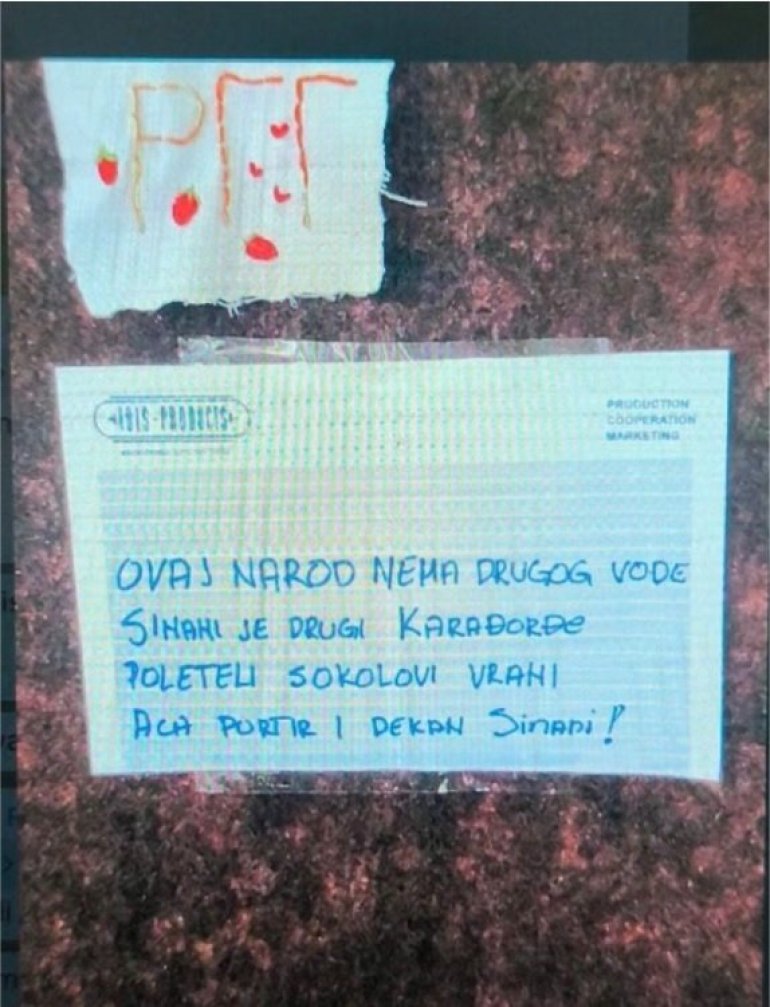 РГГ
IBIS-PRODUCTS
PRODUCTION
COOPERATION
MARKETING
OVAJ NAROD NEMA DRUGOG VODE
SINANI JE DRUGI KARAĐORĐE
POLETELI SOKOLOVI VRANI
ACA PORTIR I DEKAN SINANI!